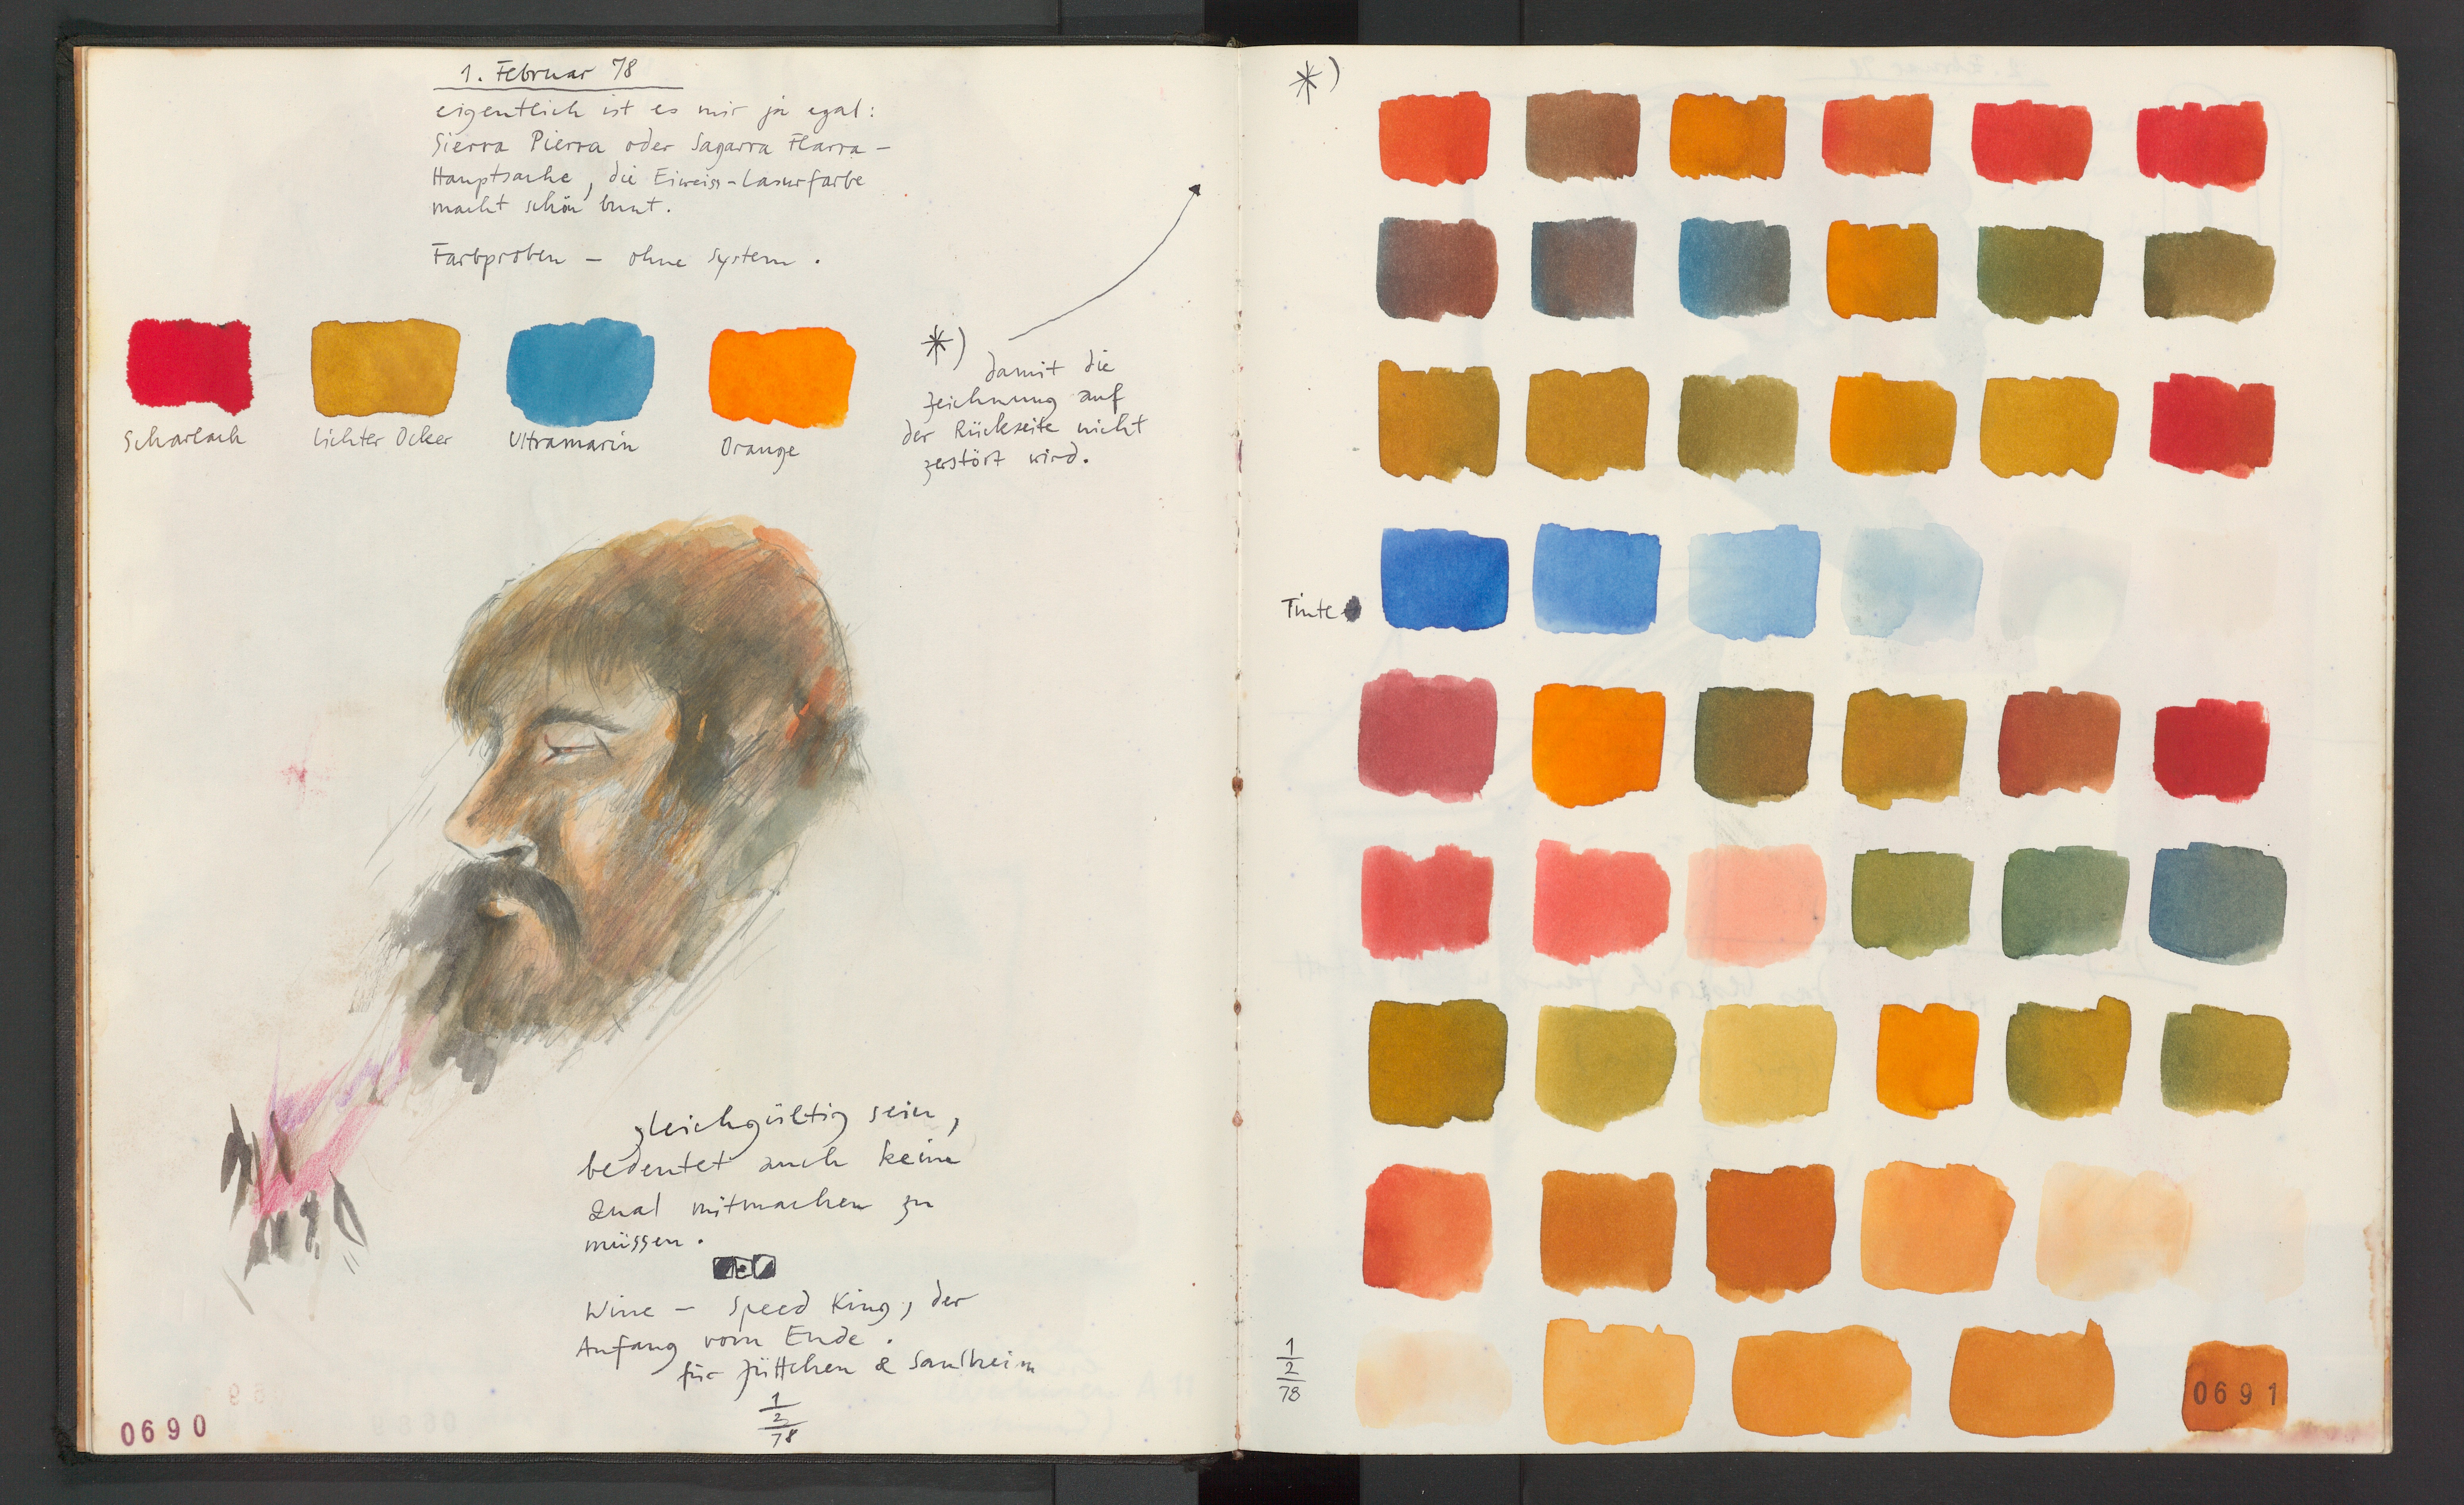 1. Februar 78
eigentlich ist es mir ja egal:
Sierra Pierra oder Sagarra Flarra –
Hauptsache, die Eiweiss-Lasurfarbe
macht schön bunt.
Farbproben – ohne System.
Scharlach
lichter Ocker
Ultramarin
Orange
*) damit die
Zeichnung auf
der Rückseite nicht
zerstört wird.
gleichgültig sein,
bedeutet auch keine
Qual mitmachen zu
müssen.
Wine – Speed King, der
Anfang vom Ende.
für Jüttchen & Saulheim
1
2
78
0690
*)
Tinte
1
2
78
0691